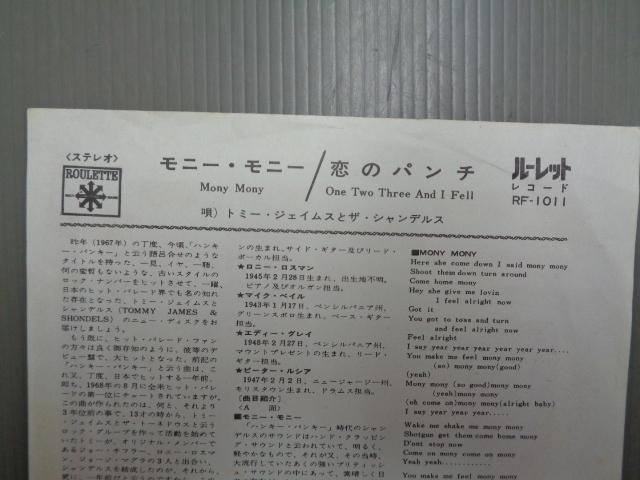 〈ステレオ〉
ROULETTE
モニー・モニー／恋のパンチ
Mony Mony
One Two Three And I Fell
唄）トミー・ジェイムスとザ・シャンデルス
ルーレット
レコード
RF-1011
昨年（1967年）の丁度、今頃、「ハンキ
ー・パンキー」と云う語呂合せのような
タイトルを持った、一見、イヤ、一聴、
何の変哲もないような、古いスタイルの
ロック・ナンバーをヒットさせて、一躍、
日本のヒット・パレード界でも名の知れ
た存在となった、トミー・ジェイムスと
シャンデルス（TOMMY JAMES &
SHONDELS）のニュー・ディスクをお
届けしましょう。
もう既に、ヒット・パレード・ファン
の方々は良く御存知のように、彼等のデ
ビュー盤で、大ヒットとなった、前記の
「ハンキー・パンキー」と云う曲は、こ
れ又、丁度、日本でヒットする一年前、
即ち、1966年の8月に全米ヒット・パレ
ードの第一位にチャートされていますが、
この曲が作られたのは、何と、それより
3年位前の事で、13才の時から、トミー
・ジェイムスとザ・トーネドウスと云う
ロック・グループを作って活動を始めて
いたトミーが、オリジナル・メンバーで
あるジョー・オフラー、ロニー・ロスマ
ン、ジョージ・マグラの3人と出合い、
シャンデルスを結成したのが、それから、
ンの生まれ、サイド・ギター及びリード・
ボーカル担当。
★ロニー・ロスマン
1945年2月28日生まれ、出生地不明、
ピアノ及びオルガン担当。
★マイク・ベイル
1943年1月17日、ペンシルバニア州、
グリーンスボロ生まれ、ベース・ギター
担当。
★エディー・グレイ
1948年2月27日、ペンシルバニア州、
マウントプレゼントの生まれ、リード・
ギター担当。
★ピーター・ルシア
1947年2月2日、ニュージャージー州、
モリスタウン生まれ、ドラムス担当。
〈曲目紹介〉
〈A 面〉
■モニー・モニー
「ハンキー・パンキー」時代のシャン
デルスのサウンドはハンド・クラッピン
グ・サウンドと云われていて、明るく、
軽やかなもので、それが又、その当時、
大流行していたあくの強いブリティッシ
ュ・サウンドの中にあって、素晴しく目
■MONY MONY
Here she come down I said mony mony
Shoot them down turn around
Come home mony
Hey she give me lovin
I feel alright now
Got it
You got to toss and turn
and feel alright now
Feel alright
I say year year year year year year....
You make me feel mony mony
(so) mony mony(good)
(yeah)
Mony mony (so good)mony mony
(yeah)mony mony
(oh come on)mony mony(alright baby)
I say year year year.....
Wake me shake me mony mony
Shotgun get them come home mony
D'ont stop now
Come on mony come on mony
Yeah yeah............